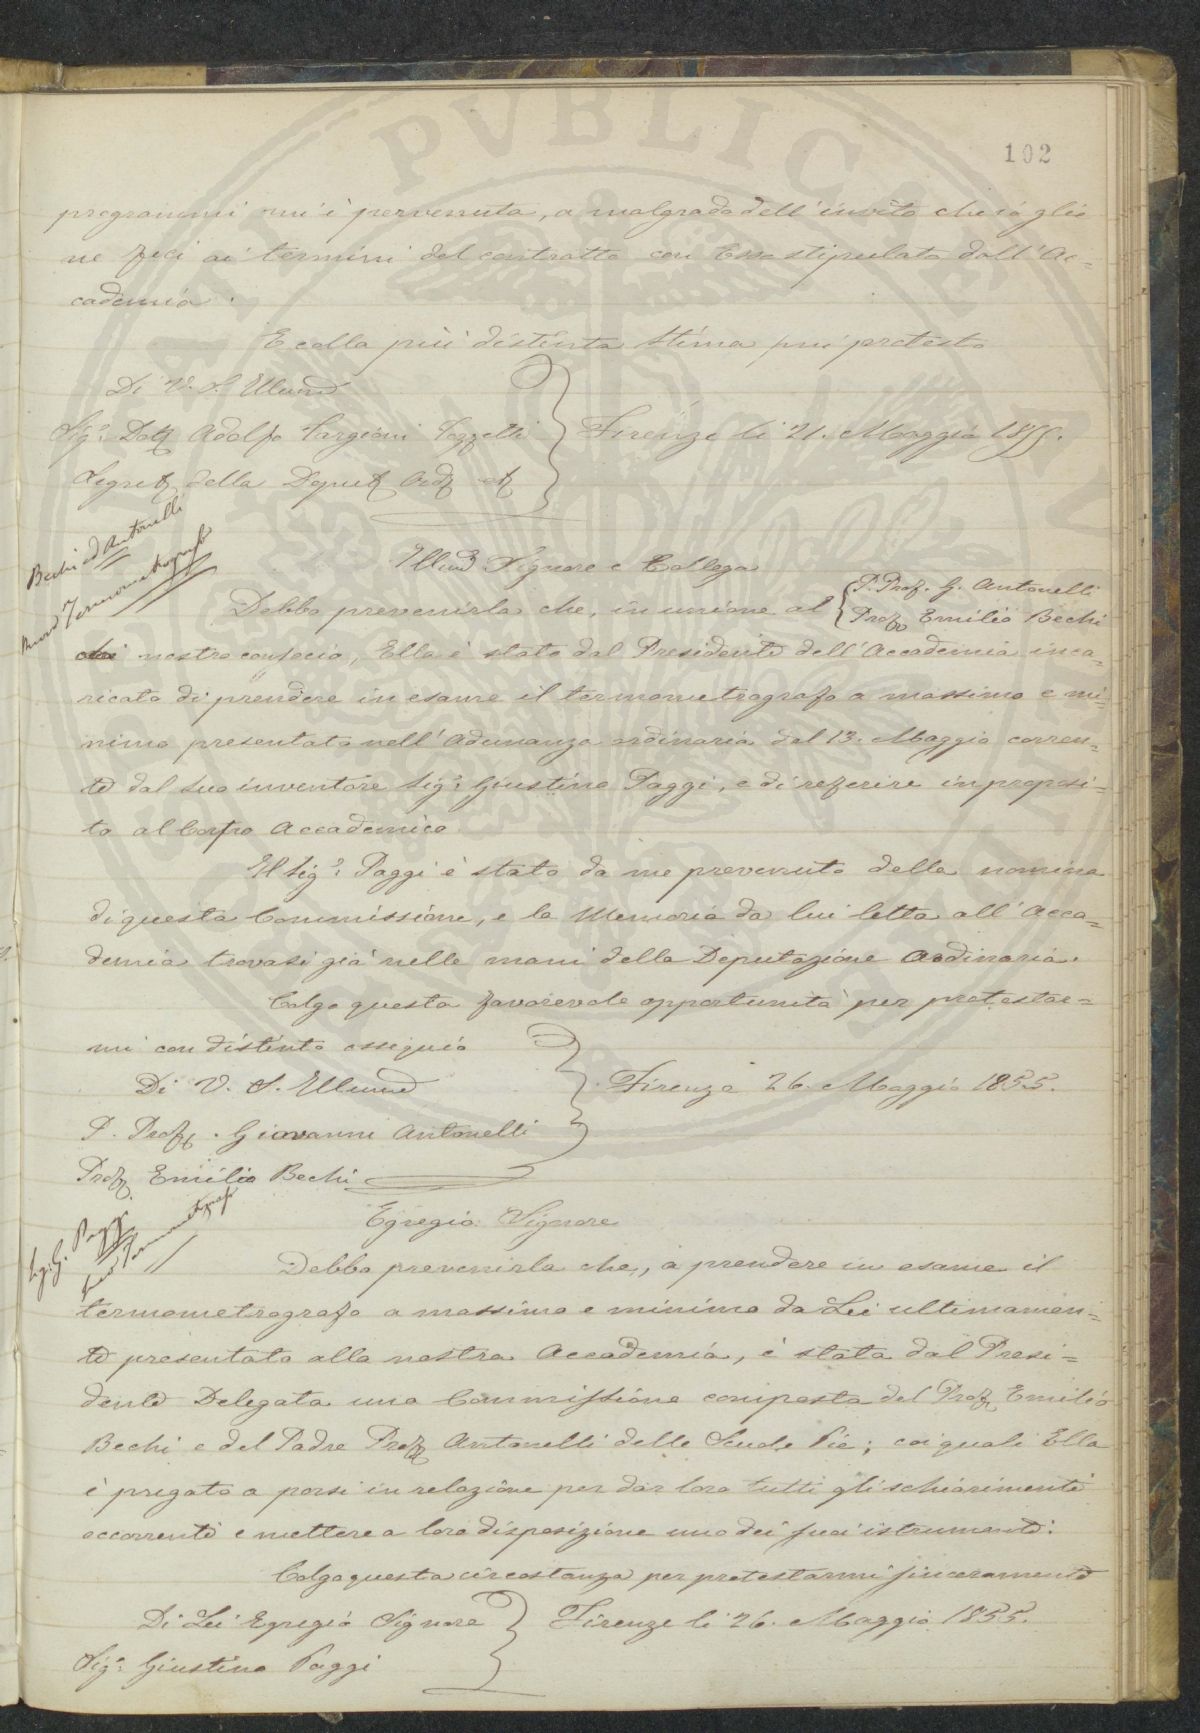 102
programmi mi è pervenuta, a malgrado dell'invito che io glie
ne feci ai termini del contratto con Esso stipulato dall'Ac=
cademia.
E colla più distinta stima mi protesto
Di V. S. Illma
Sigr. Dott Adolfo Targioni Tozzetti
Segret della Deput Ord et
Firenze li 21. Maggio 1855.
Bechi ed Antonelli
Termometrografo
Illmo Signore e Collega
Debbo prevenirla che, in unione al
P. Prof. G. Antonelli
Prof Emilio Bechi
nostro consocio, Ella è stato dal Presidente dell'Accademia inca=
ricato di prendere in esame il termometrografo a massimo e mi=
nimo presentato nell'Adunanza ordinaria del 13. Maggio corren=
te dal suo inventore Sigr. Giustino Paggi, e di referire in proposi=
to al Corpo Accademico.
Il Sigr. Paggi è stato da me prevenuto della nomina
di questa Commissione, e la Memoria da lui letta all'Acca=
demia trovasi già nelle mani della Deputazione Ordinaria.
Colgo questa favorevole opportunità per protestar=
mi con distinto ossequio
Di V. S. Illma
P. Prof. Giovanni Antonelli
Prof Emilio Bechi
Firenze 26. Maggio 1855.
Sig. G. Paggi
Termometrografo
Egregio Signore
Debbo prevenirla che, a prendere in esame il
termometrografo a massimo e minimo da Lei ultimamen=
te presentato alla nostra Accademia, è stata dal Presi=
dente Delegata una Commissione composta del Prof Emilio
Bechi e del Padre Prof Antonelli delle Scuole Pie; coi quali Ella
è pregato a porsi in relazione per dar loro tutti gli schiarimenti
occorrenti e mettere a loro disposizione uno dei suoi istrumenti.
Colgo questa circostanza per protestarmi sinceramente
Di Lei Egregio Signore
Sigr. Giustino Paggi
Firenze li 26. Maggio 1855.